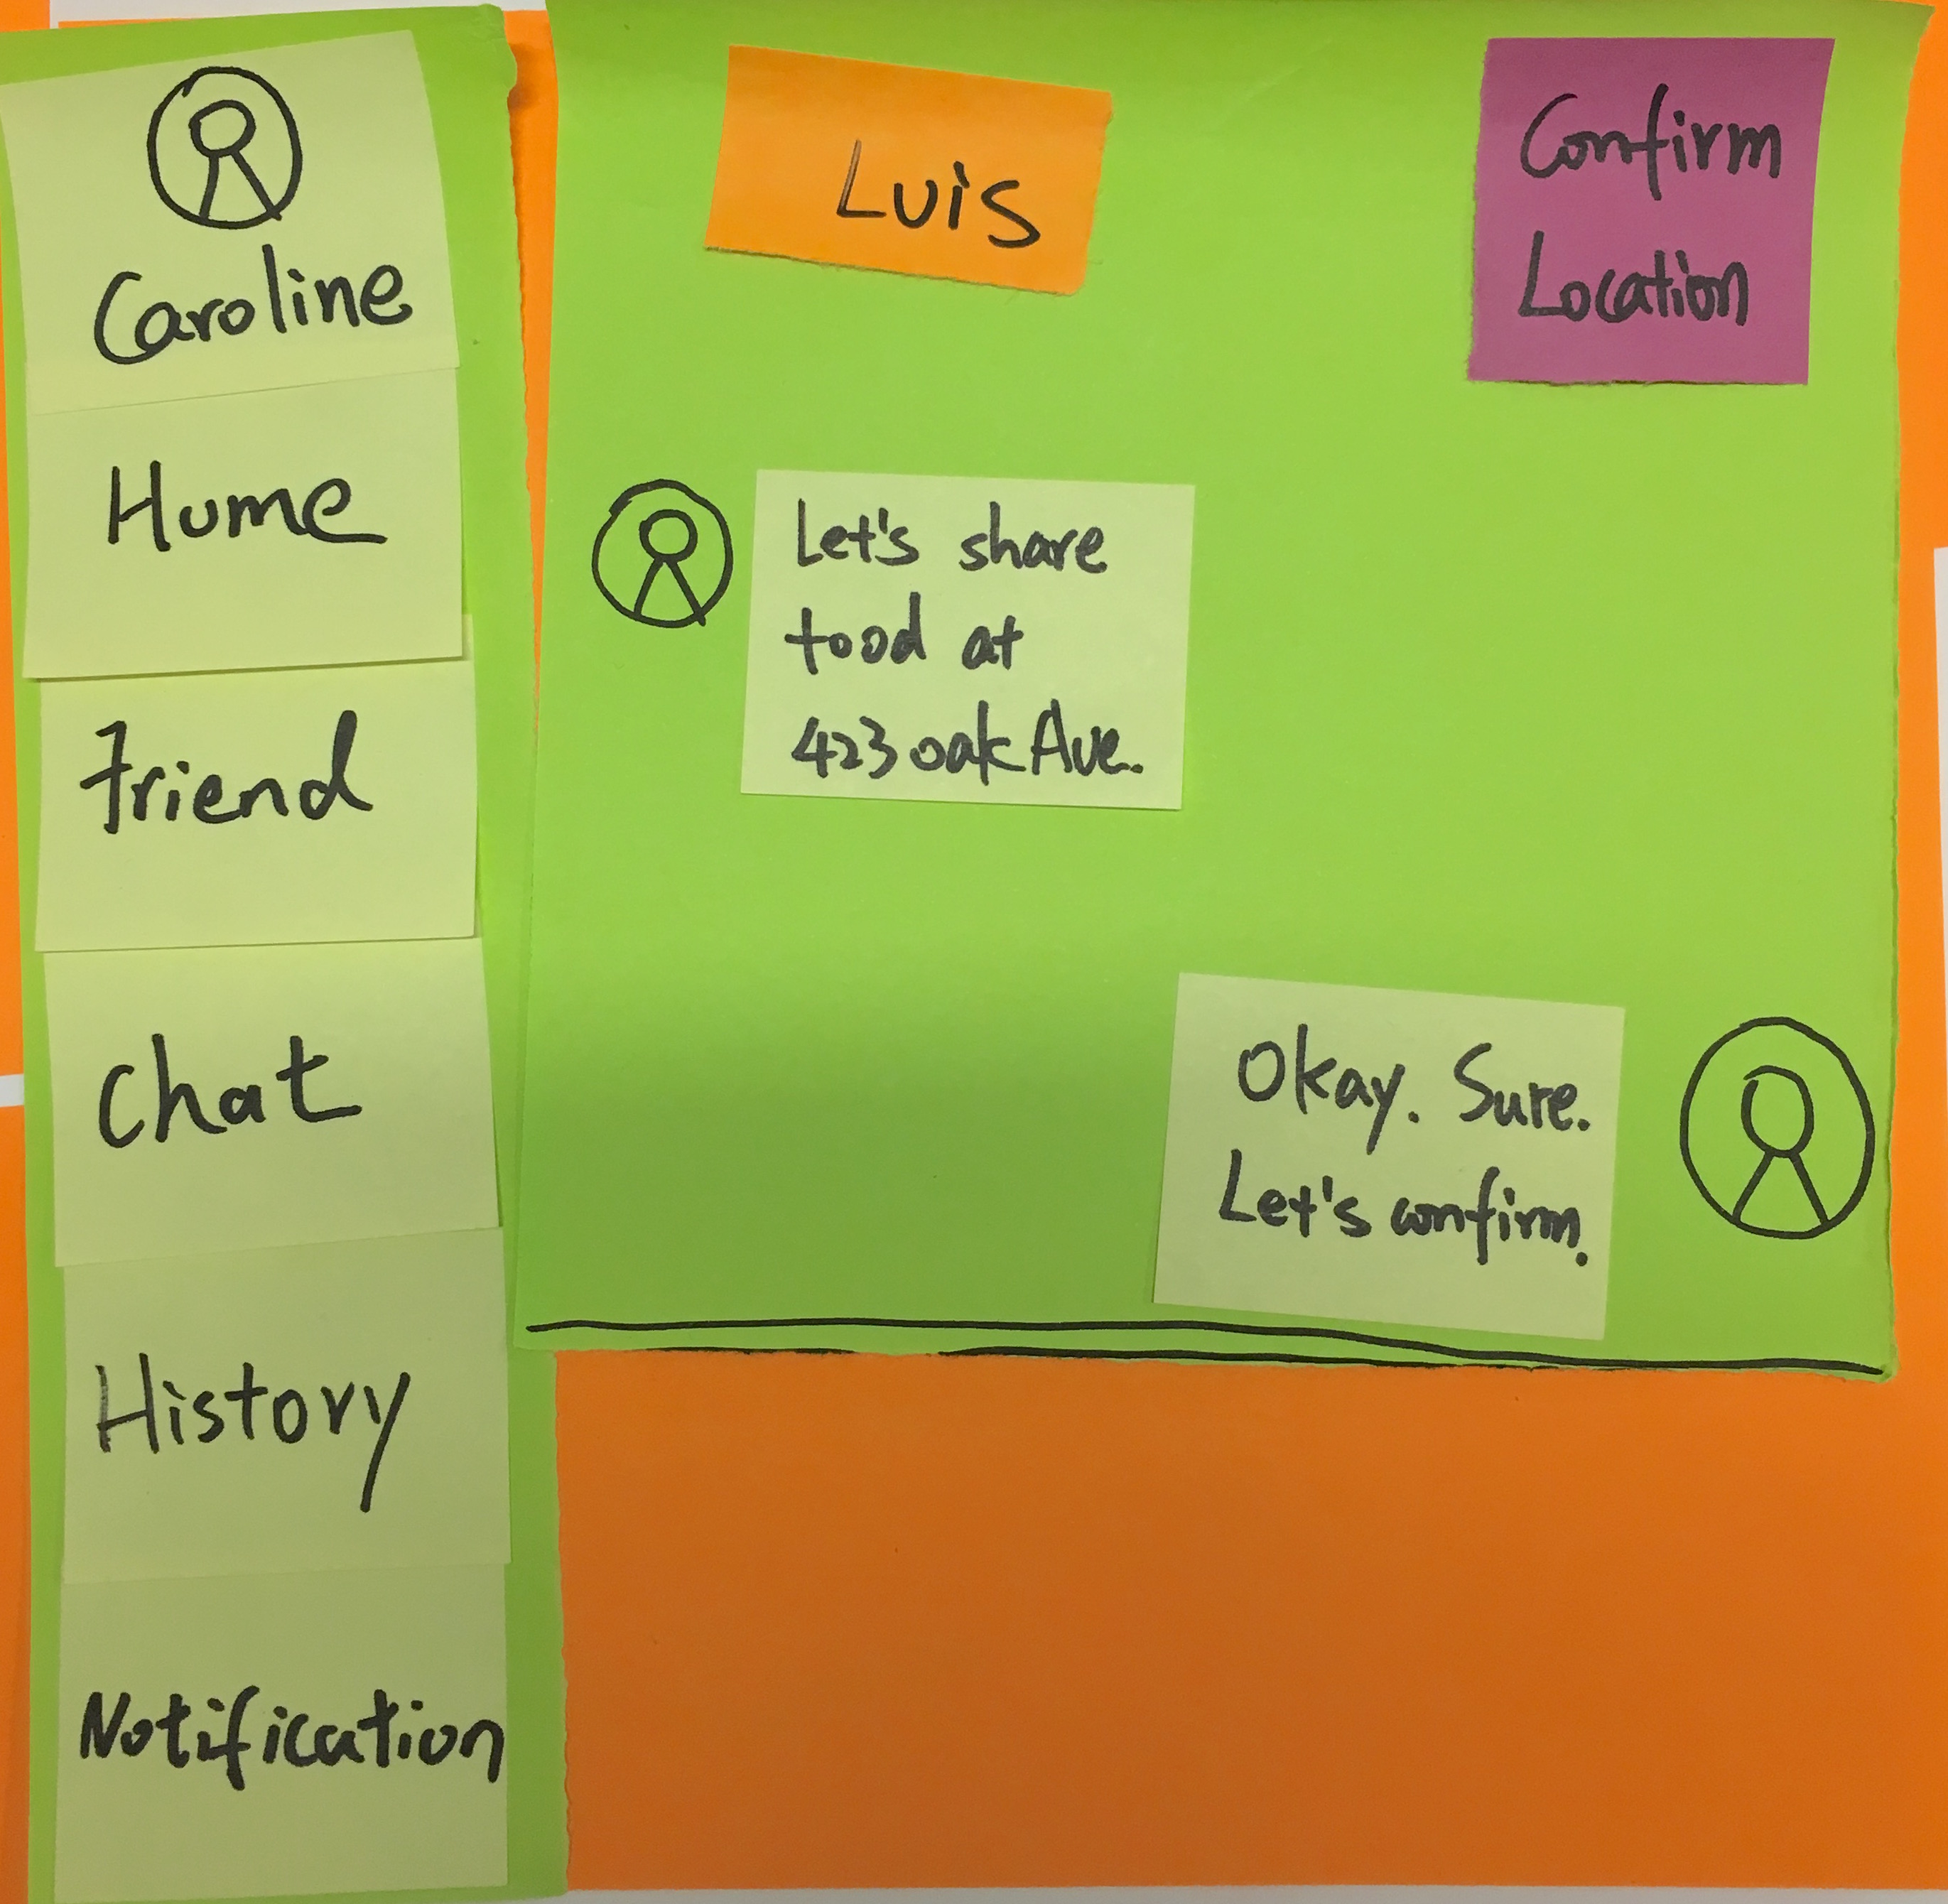 Caroline
Home
Friend
Chat
History
Notification
Luis
Confirm
Location
Let's share
food at
423 oak Ave.
Okay. Sure.
Let's confirm.